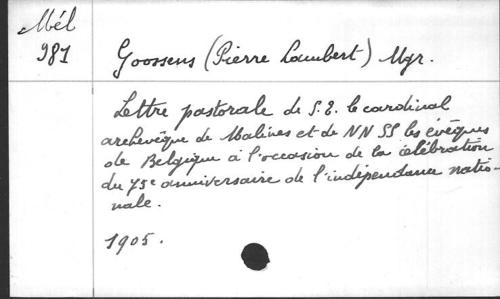 Mél
981
Goossens (Pierre Lambert) Mgr.
Lettre pastorale de S.E. le cardinal
archevêque de Malines et de NN SS les évêques
de Belgique à l'occasion de la célébration
du 75e anniversaire de l'indépendance natio-
nale.
1905.